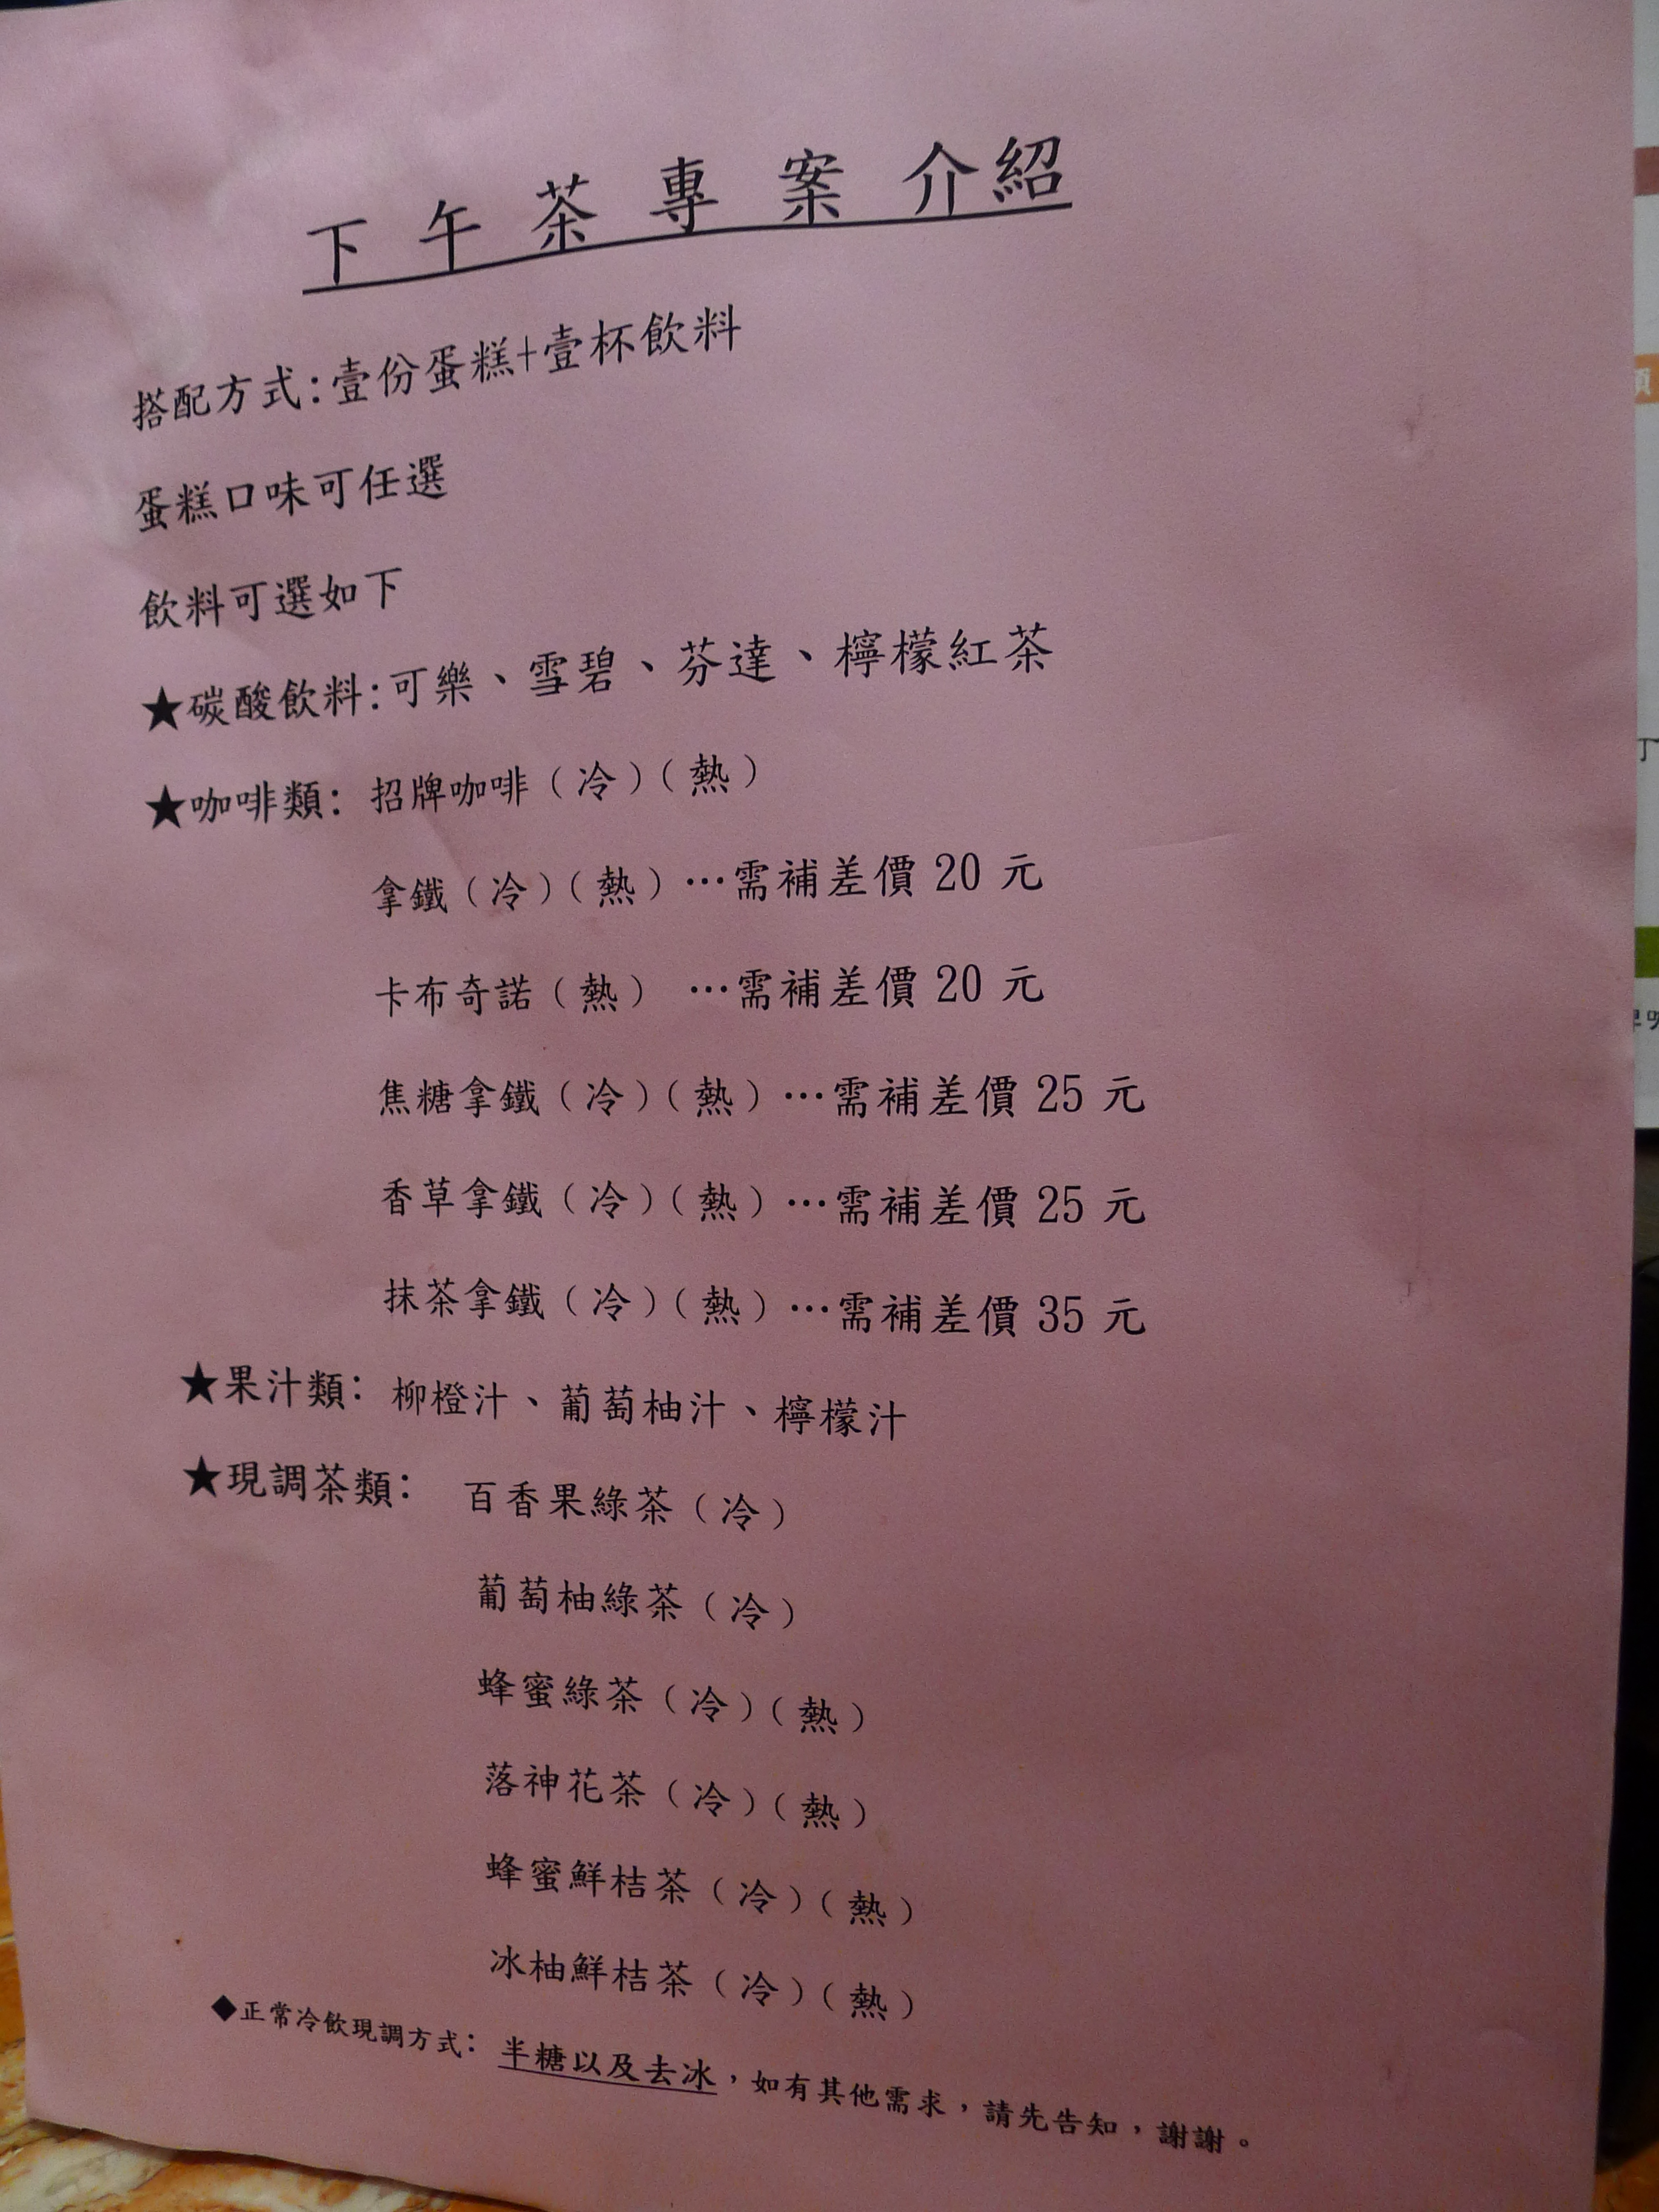 下午茶專案介紹
搭配方式:壹份蛋糕+壹杯飲料
蛋糕口味可任選
飲料可選如下
★碳酸飲料:可樂、雪碧、芬達、檸檬紅茶
★咖啡類: 招牌咖啡(冷)(熱)
拿鐵(冷)(熱)…需補差價 20 元
卡布奇諾(熱) …需補差價 20 元
焦糖拿鐵(冷)(熱)…需補差價 25 元
香草拿鐵(冷)(熱)…需補差價 25 元
抹茶拿鐵(冷)(熱)…需補差價 35 元
★果汁類: 柳橙汁、葡萄柚汁、檸檬汁
★現調茶類: 百香果綠茶(冷)
葡萄柚綠茶(冷)
蜂蜜綠茶(冷)(熱)
落神花茶(冷)(熱)
蜂蜜鮮桔茶(冷)(熱)
冰柚鮮桔茶(冷)(熱)
◆正常冷飲現調方式: 半糖以及去冰,如有其他需求,請先告知,謝謝。